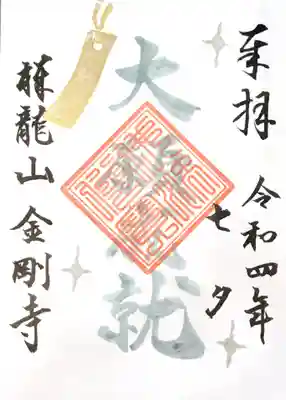 奉拝
令和四年
七夕
大願成就
龍山 金剛寺